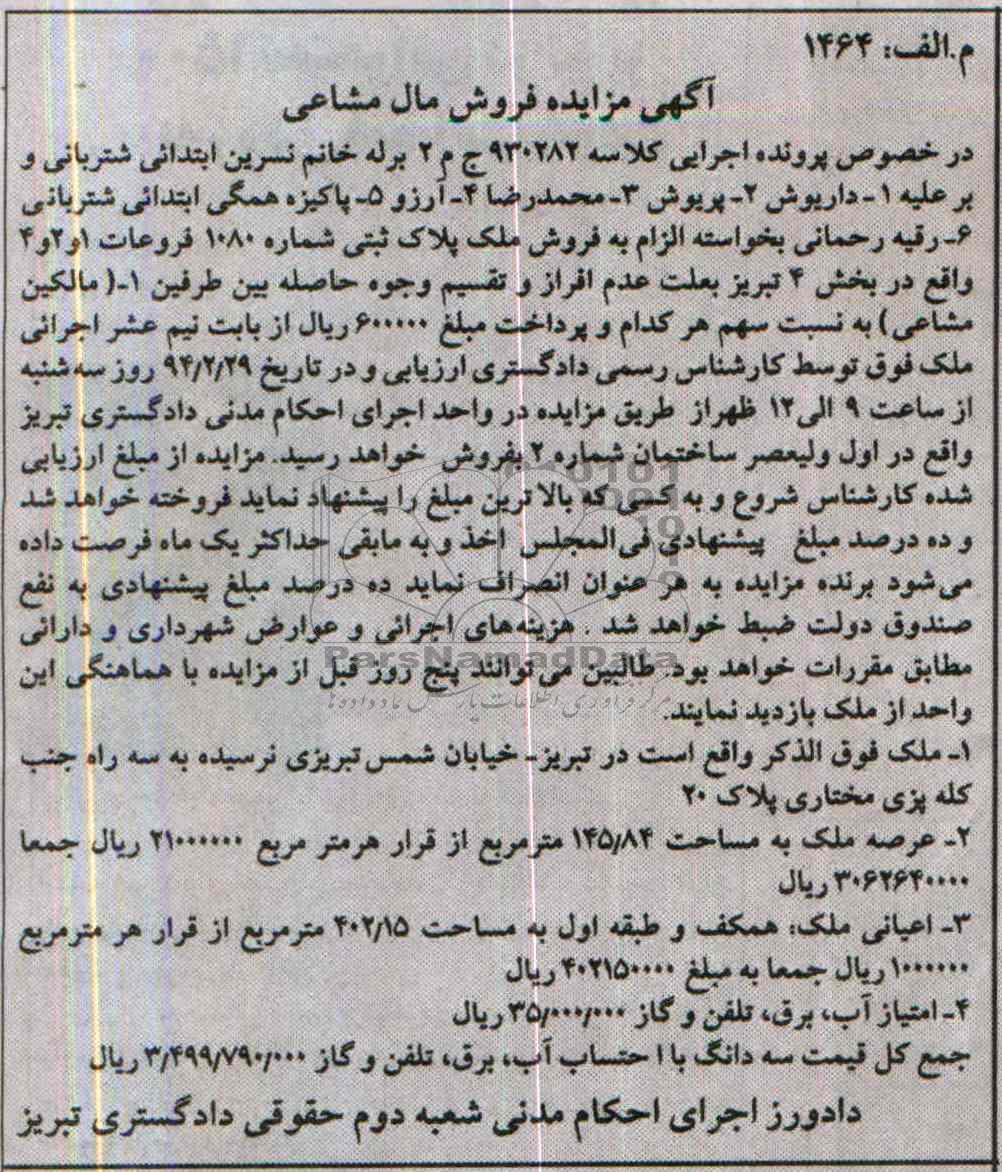 م.الف: ۱۴۶۴
آگهی مزایده فروش مال مشاعی
در خصوص پرونده اجرایی کلاسه ۹۳۰۲۸۲ ج م ۲ برله خانم نسرین ابتدائی شتربانی و
بر علیه ۱ـ داریوش ۲ـ پریوش ۳ـ محمدرضا ۴ـ آرزو ۵ـ پاکیزه همگی ابتدائی شتربانی
۶ـ رقیه رحمانی بخواسته الزام به فروش ملک پلاک ثبتی شماره ۱۰۸۰ فروعات ۱و۲و۴
واقع در بخش ۴ تبریز بعلت عدم افراز و تقسیم وجوه حاصله بین طرفین ۱ـ( مالکین
مشاعی) به نسبت سهم هر کدام و پرداخت مبلغ ۶۰۰۰۰۰ ریال از بابت نیم عشر اجرائی
ملک فوق توسط کارشناس رسمی دادگستری ارزیابی و در تاریخ ۹۴/۲/۲۹ روز سه شنبه
از ساعت ۹ الی۱۲ ظهراز طریق مزایده در واحد اجرای احکام مدنی دادگستری تبریز
واقع در اول ولیعصر ساختمان شماره ۲ بفروش خواهد رسید. مزایده از مبلغ ارزیابی
شده کارشناس شروع و به کسی که بالا ترین مبلغ را پیشنهاد نماید فروخته خواهد شد
و ده درصد مبلغ پیشنهادی فی‌المجلس اخذ و به مابقی حداکثر یک ماه فرصت داده
می‌شود برنده مزایده به هر عنوان انصراف نماید ده درصد مبلغ پیشنهادی به نفع
صندوق دولت ضبط خواهد شد . هزینه‌های اجرائی و عوارض شهرداری و دارائی
مطابق مقررات خواهد بود. طالبین می‌توانند پنج روز قبل از مزایده با هماهنگی این
واحد از ملک بازدید نمایند.
۱ـ ملک فوق الذکر واقع است در تبریز- خیابان شمس تبریزی نرسیده به سه راه جنب
کله پزی مختاری پلاک ۲۰
۲ـ عرصه ملک به مساحت ۱۴۵/۸۴ مترمربع از قرار هرمتر مربع ۲۱۰۰۰۰۰۰ ریال جمعا
۳۰۶۲۶۴۰۰۰۰ ریال
۳ـ اعیانی ملک: همکف و طبقه اول به مساحت ۴۰۲/۱۵ مترمربع از قرار هر مترمربع
۱۰۰۰۰۰۰ ریال جمعا به مبلغ ۴۰۲۱۵۰۰۰۰ ریال
۴ـ امتیاز آب، برق، تلفن و گاز ۳۵/۰۰۰/۰۰۰ ریال
جمع کل قیمت سه دانگ با ا حتساب آب، برق، تلفن و گاز ۳/۴۹۹/۷۹۰/۰۰۰ ریال
دادورز اجرای احکام مدنی شعبه دوم حقوقی دادگستری تبریز
ParsNamadData